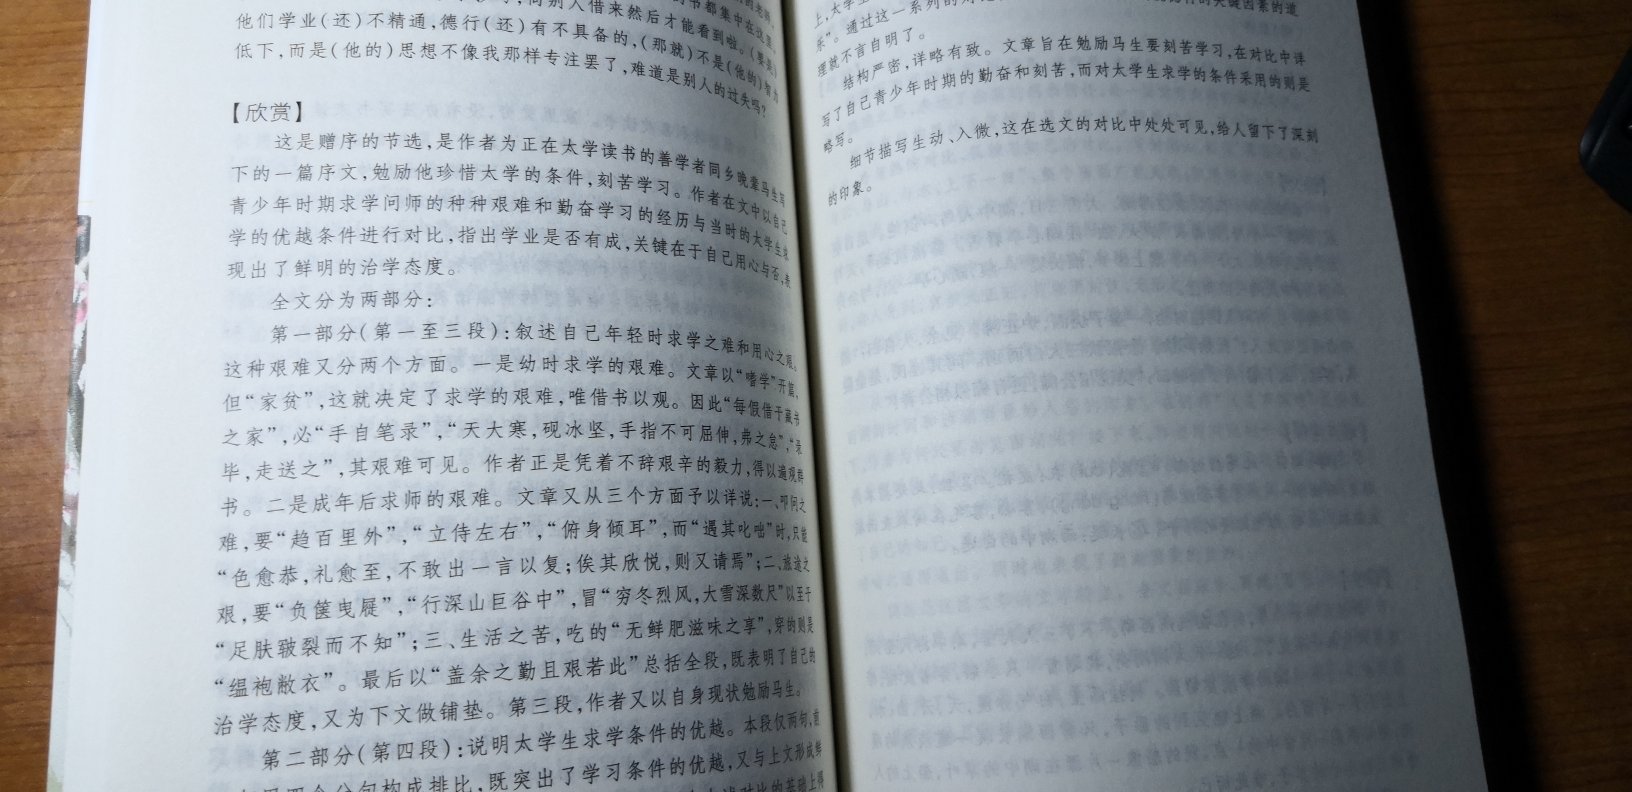 他们学业(还)不精通,德行(还)有不具备的,(那就)不是(他的)智力
低下,而是(他的)思想不像我那样专注罢了,难道是别人的过失吗?
【欣赏】
这是赠序的节选,是作者为正在太学读书的善学者同乡晚辈马生写
下的一篇序文,勉励他珍惜太学的条件,刻苦学习。作者在文中以自己
青少年时期求学问师的种种艰难和勤奋学习的经历与当时的太学生求
学的优越条件进行对比,指出学业是否有成,关键在于自己用心与否,表
现出了鲜明的治学态度。
全文分为两部分:
第一部分(第一至三段):叙述自己年轻时求学之难和用心之艰。
这种艰难又分两个方面。一是幼时求学的艰难。文章以“嗜学”开篇,
但“家贫”,这就决定了求学的艰难,唯借书以观。因此“每假借于藏书
之家”,必“手自笔录”,“天大寒,砚冰坚,手指不可屈伸,弗之怠”,“录
毕,走送之”,其艰难可见。作者正是凭着不辞艰辛的毅力,得以遍观群
书。二是成年后求师的艰难。文章又从三个方面予以详说:一、叩问之
难,要“趋百里外”,“立侍左右”,“俯身倾耳”,而“遇其叱咄”时,只能
“色愈恭,礼愈至,不敢出一言以复;俟其欣悦,则又请焉”;二、旅途之
艰,要“负箧曳屣”,“行深山巨谷中”,冒“穷冬烈风,大雪深数尺”以至于
“足肤皲裂而不知”;三、生活之苦,吃的“无鲜肥滋味之享”,穿的则是
“缊袍敝衣”。最后以“盖余之勤且艰若此”总括全段,既表明了自己的
治学态度,又为下文做铺垫。第三段,作者又以自身现状勉励马生。
第二部分(第四段):说明太学生求学条件的优越。本段仅两句,前
四个分句构成排比,既突出了学习条件的优越,又与上文形成鲜
杀”。通过这一系列的对
理就不言自明了。
结构严密,详略有致。文章旨在勉励马生要刻苦学习,在对比中详
写了自己青少年时期的勤奋和刻苦,而对太学生求学的条件采用的则是
略写。
细节描写生动、入微,这在选文的对比中处处可见,给人留下了深刻
的印象。